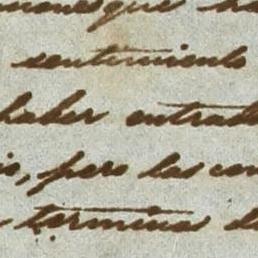 que
sentimiento
haber entrad
pero las con
termina de